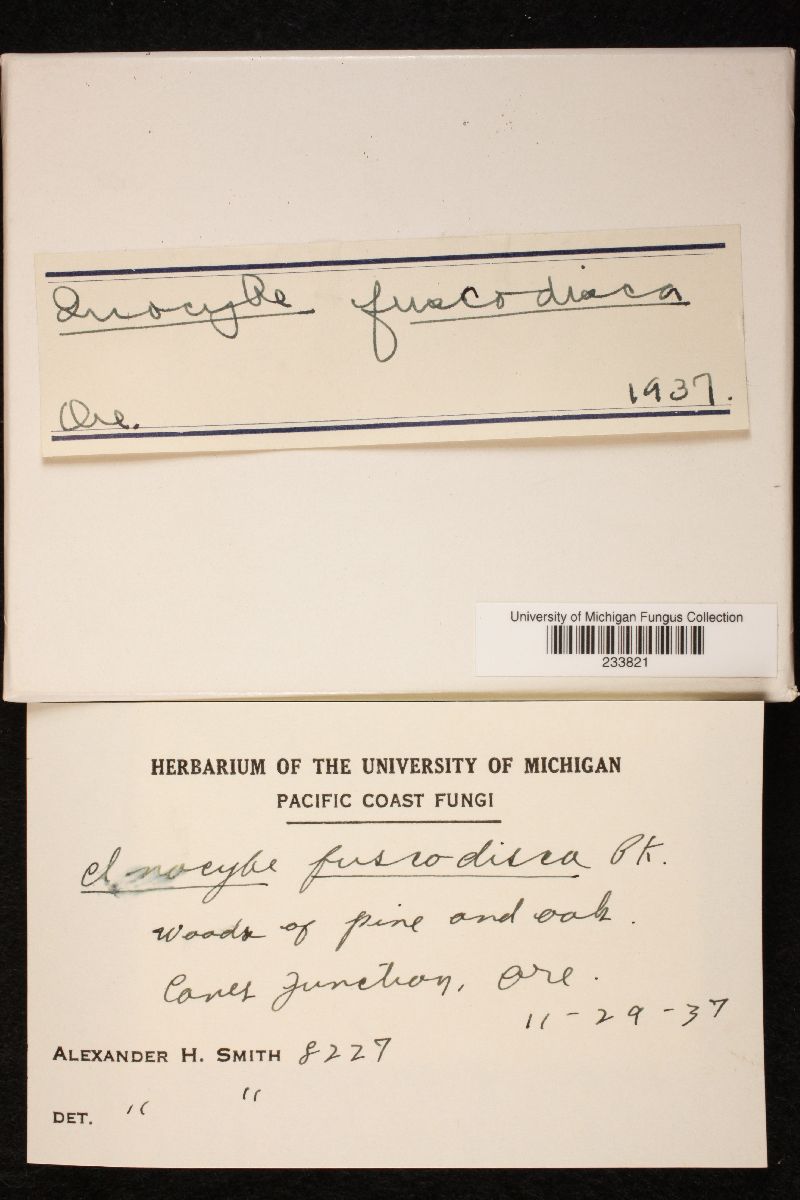 Inocybe fuscodisca
Ore. 1937.
University of Michigan Fungus Collection
233821
HERBARIUM OF THE UNIVERSITY OF MICHIGAN
PACIFIC COAST FUNGI
Inocybe fuscodisca Pk.
Woods of pine and oak.
Caves Junction, Ore.
11-29-37
ALEXANDER H. SMITH 8227
DET. " "